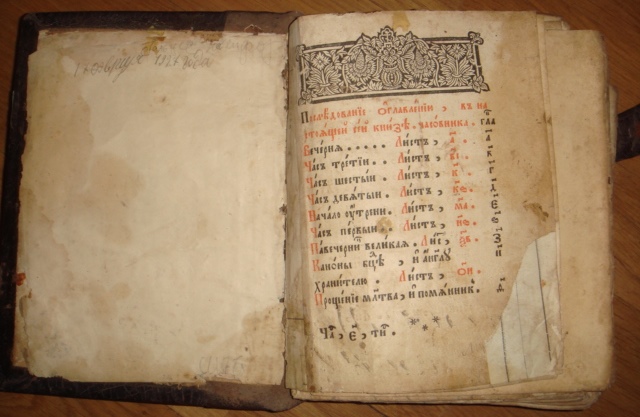 Послѣдованїе ѻ҆главленїи, въ на
стоѧщей сей кни́зѣ часовника. гла
Вечерня ..... Листъ, а҃. а
Часъ третїи .. Листъ, в҃і. к
Часъ шестыи . Листъ, к҃. г
Часъ девѧтыи . Листъ, к҃е. д
Начало оутрени. Листъ, м҃а. е
Часъ первыи .. Листъ, н҃е.
Павечерня великая. Лис,
Каноны бцѣ, и англу и
хранителю . Листъ, о҃и.
Прощение млтва, и помѧнникъ.